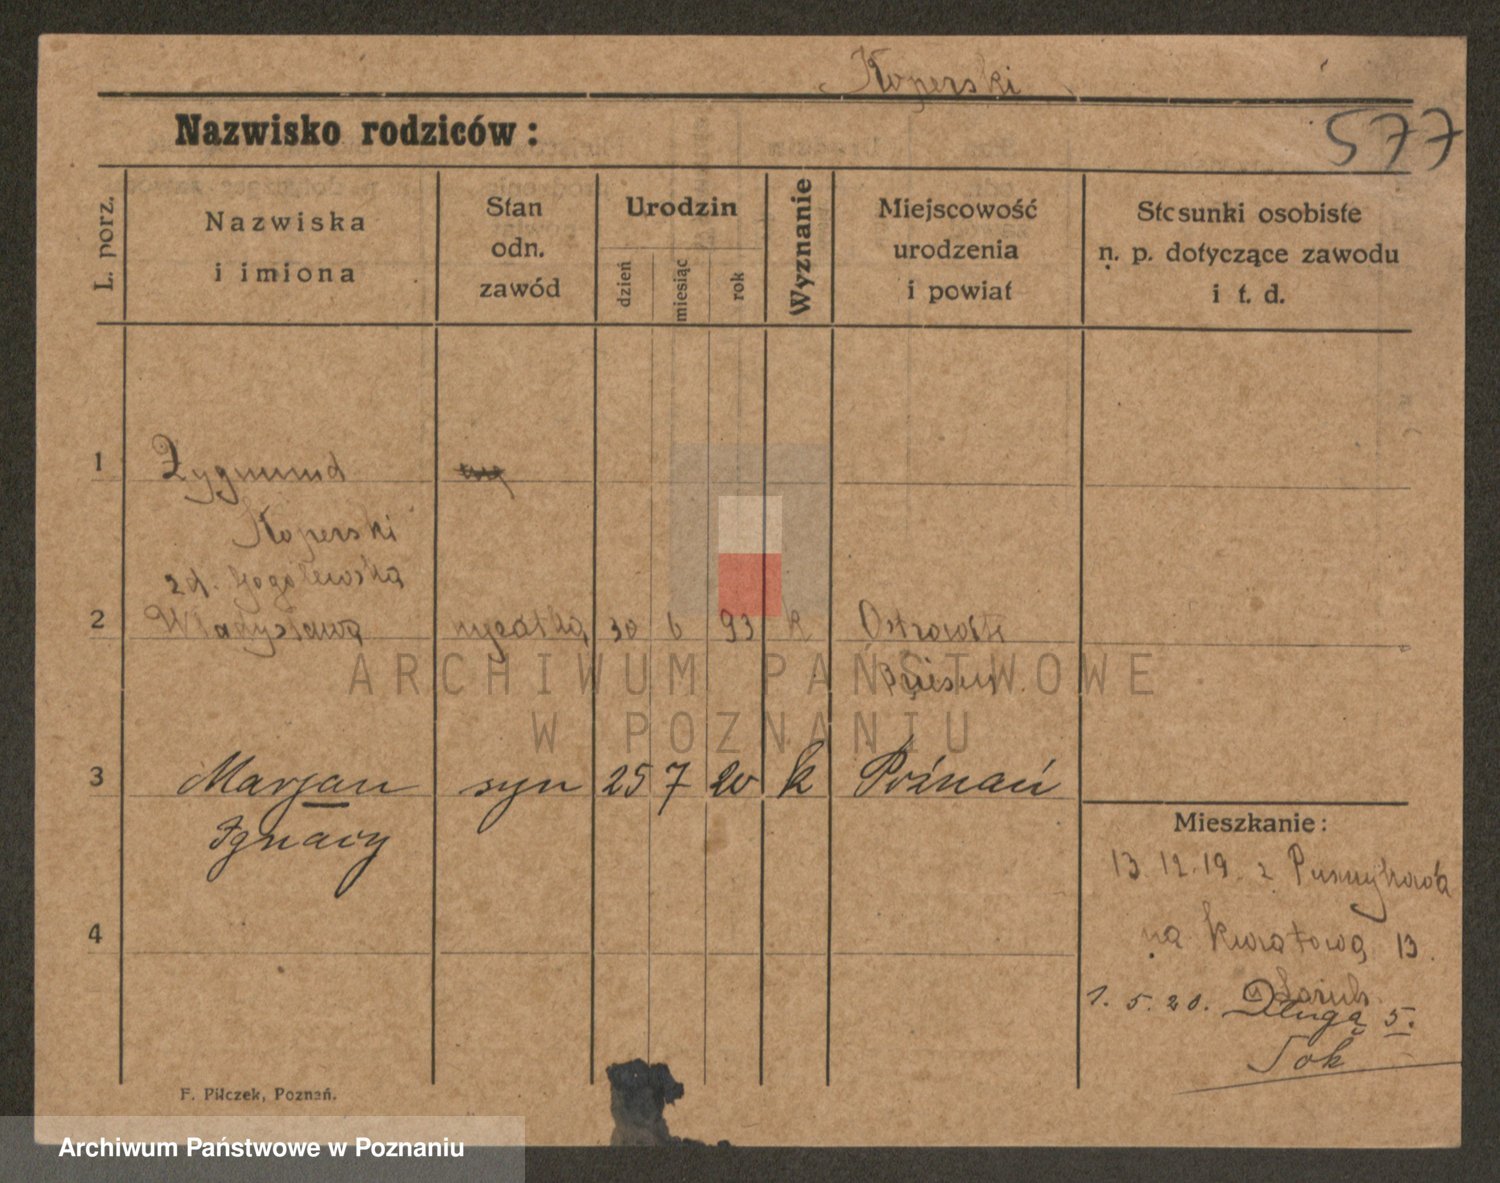 Koperski
Nazwisko rodziców:
577
L. porz.
Nazwiska
i imiona
Stan
odn.
zawód
Urodzin
dzień
miesiąc
rok
Wyznanie
Miejscowość
urodzenia
i powiat
Stosunki osobiste
n. p. dotyczące zawodu
i t. d.
1 Zygmund
Koperski
zd. Gogolewska
2 Władysława 30 6 93 k
3 Marjan syn 25 7 20 k Poznań
Ignacy
4
Mieszkanie:
13 12.19. z
na Kwiatową 13.
u
1. 5. 20. Długą 5.
F. Pilczek, Poznań.
ARCHIWUM PAŃSTWOWE
W POZNANIU
Archiwum Państwowe w Poznaniu